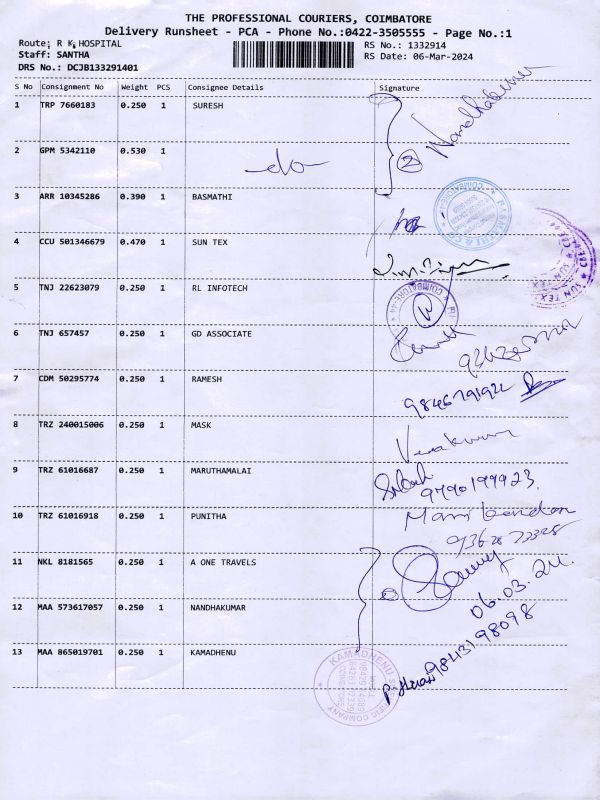 THE PROFESSIONAL COURIERS, COIMBATORE
Delivery Runsheet - PCA - Phone No.:0422-3505555 - Page No.:1
Route: R K HOSPITAL
Staff: SANTHA
DRS No.: DCJB133291401
RS No.: 1332914
RS Date: 06-Mar-2024
S No Consignment No Weight PCS Consignee Details Signature
1 TRP 7660183 0.250 1 SURESH
Nandhakumar
2 GPM 5342110 0.530 1 -do-
2
3 ARR 10345286 0.390 1 BASMATHI
4 CCU 501346679 0.470 1 SUN TEX
SUN TEX
5 TNJ 22623079 0.250 1 RL INFOTECH
6 TNJ 657457 0.250 1 GD ASSOCIATE
7 CDM 50295774 0.250 1 RAMESH
8 TRZ 240015006 0.250 1 MASK
9 TRZ 61016687 0.250 1 MARUTHAMALAI
9790199923.
10 TRZ 61016918 0.250 1 PUNITHA
Manikandan
11 NKL 8181565 0.250 1 A ONE TRAVELS
06.03.24.
12 MAA 573617057 0.250 1 NANDHAKUMAR
9843198098
13 MAA 865019701 0.250 1 KAMADHENU
KAMADHENU